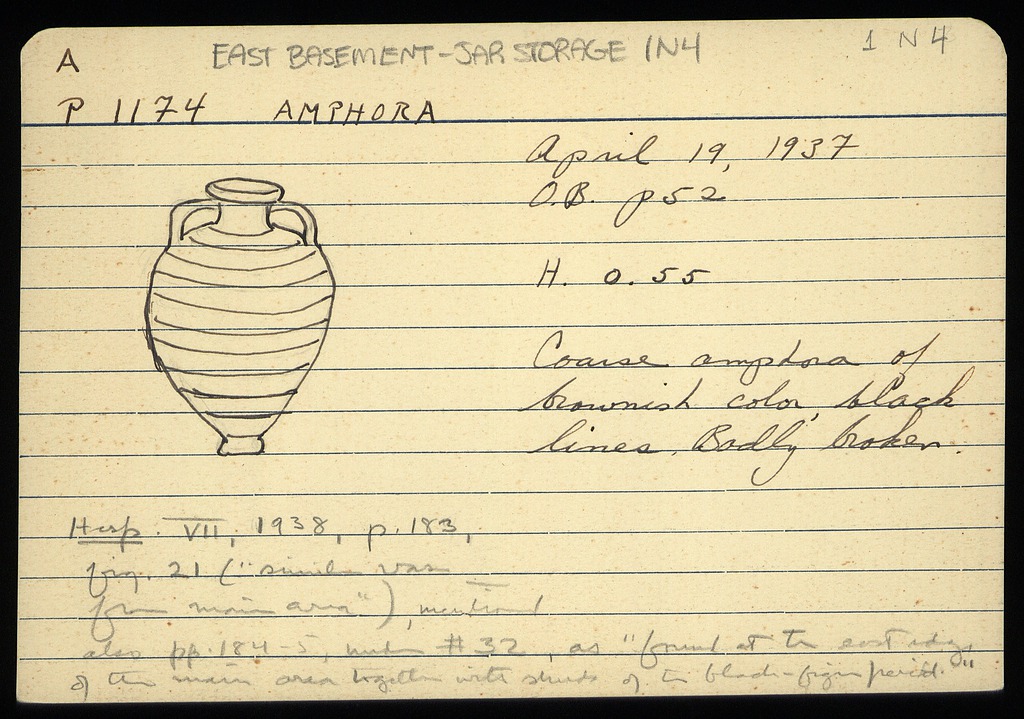 A
EAST BASEMENT-JAR STORAGE 1N4
1 N 4
P 1174 AMPHORA
April 19, 1937
O.B. p 52
H. 0.55
Coarse amphora of
brownish color, black
lines. Badly broken.
Hesp. VII, 1938, p. 183,
fig. 21 ("similar vase
from main area"), mentioned
also pp. 184-5, under #32, as "found at the east edge
of the main area together with sherds of the black-figure period."